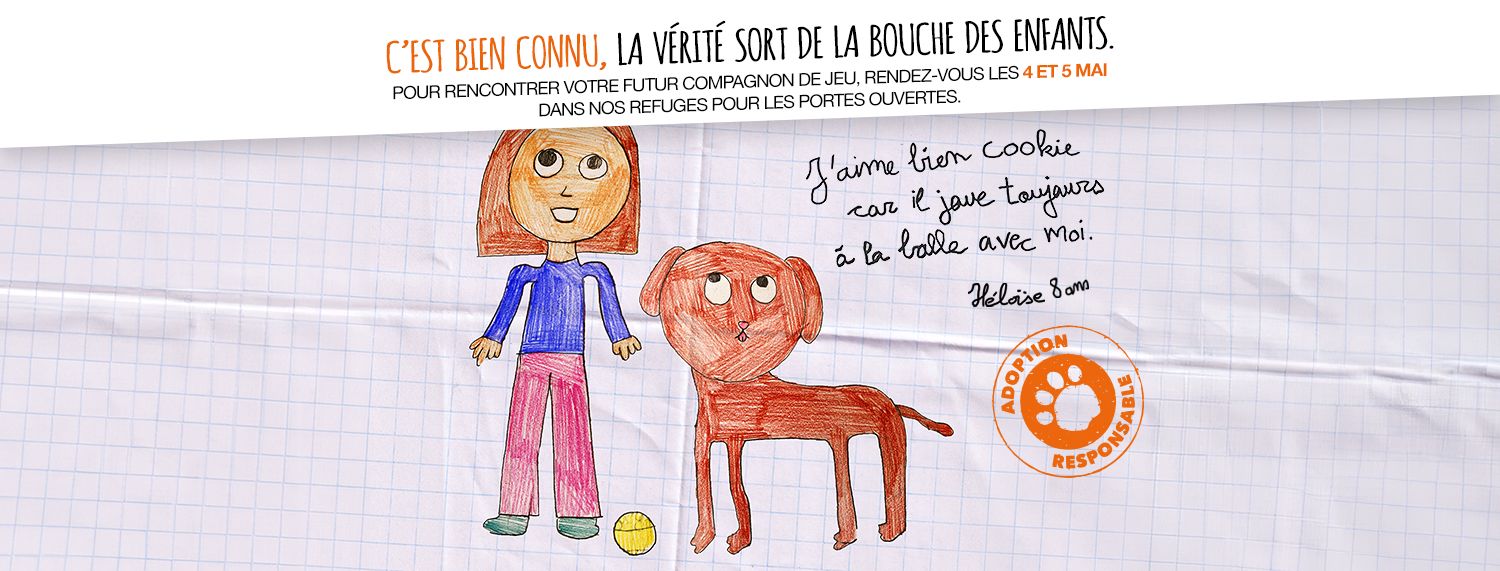 C'EST BIEN CONNU, LA VÉRITÉ SORT DE LA BOUCHE DES ENFANTS.
POUR RENCONTRER VOTRE FUTUR COMPAGNON DE JEU, RENDEZ-VOUS LES 4 ET 5 MAI
DANS NOS REFUGES POUR LES PORTES OUVERTES.
J'aime bien cookie
car il joue toujours
à la balle avec moi.
Héloïse 8 ans
ADOPTION
RESPONSABLE